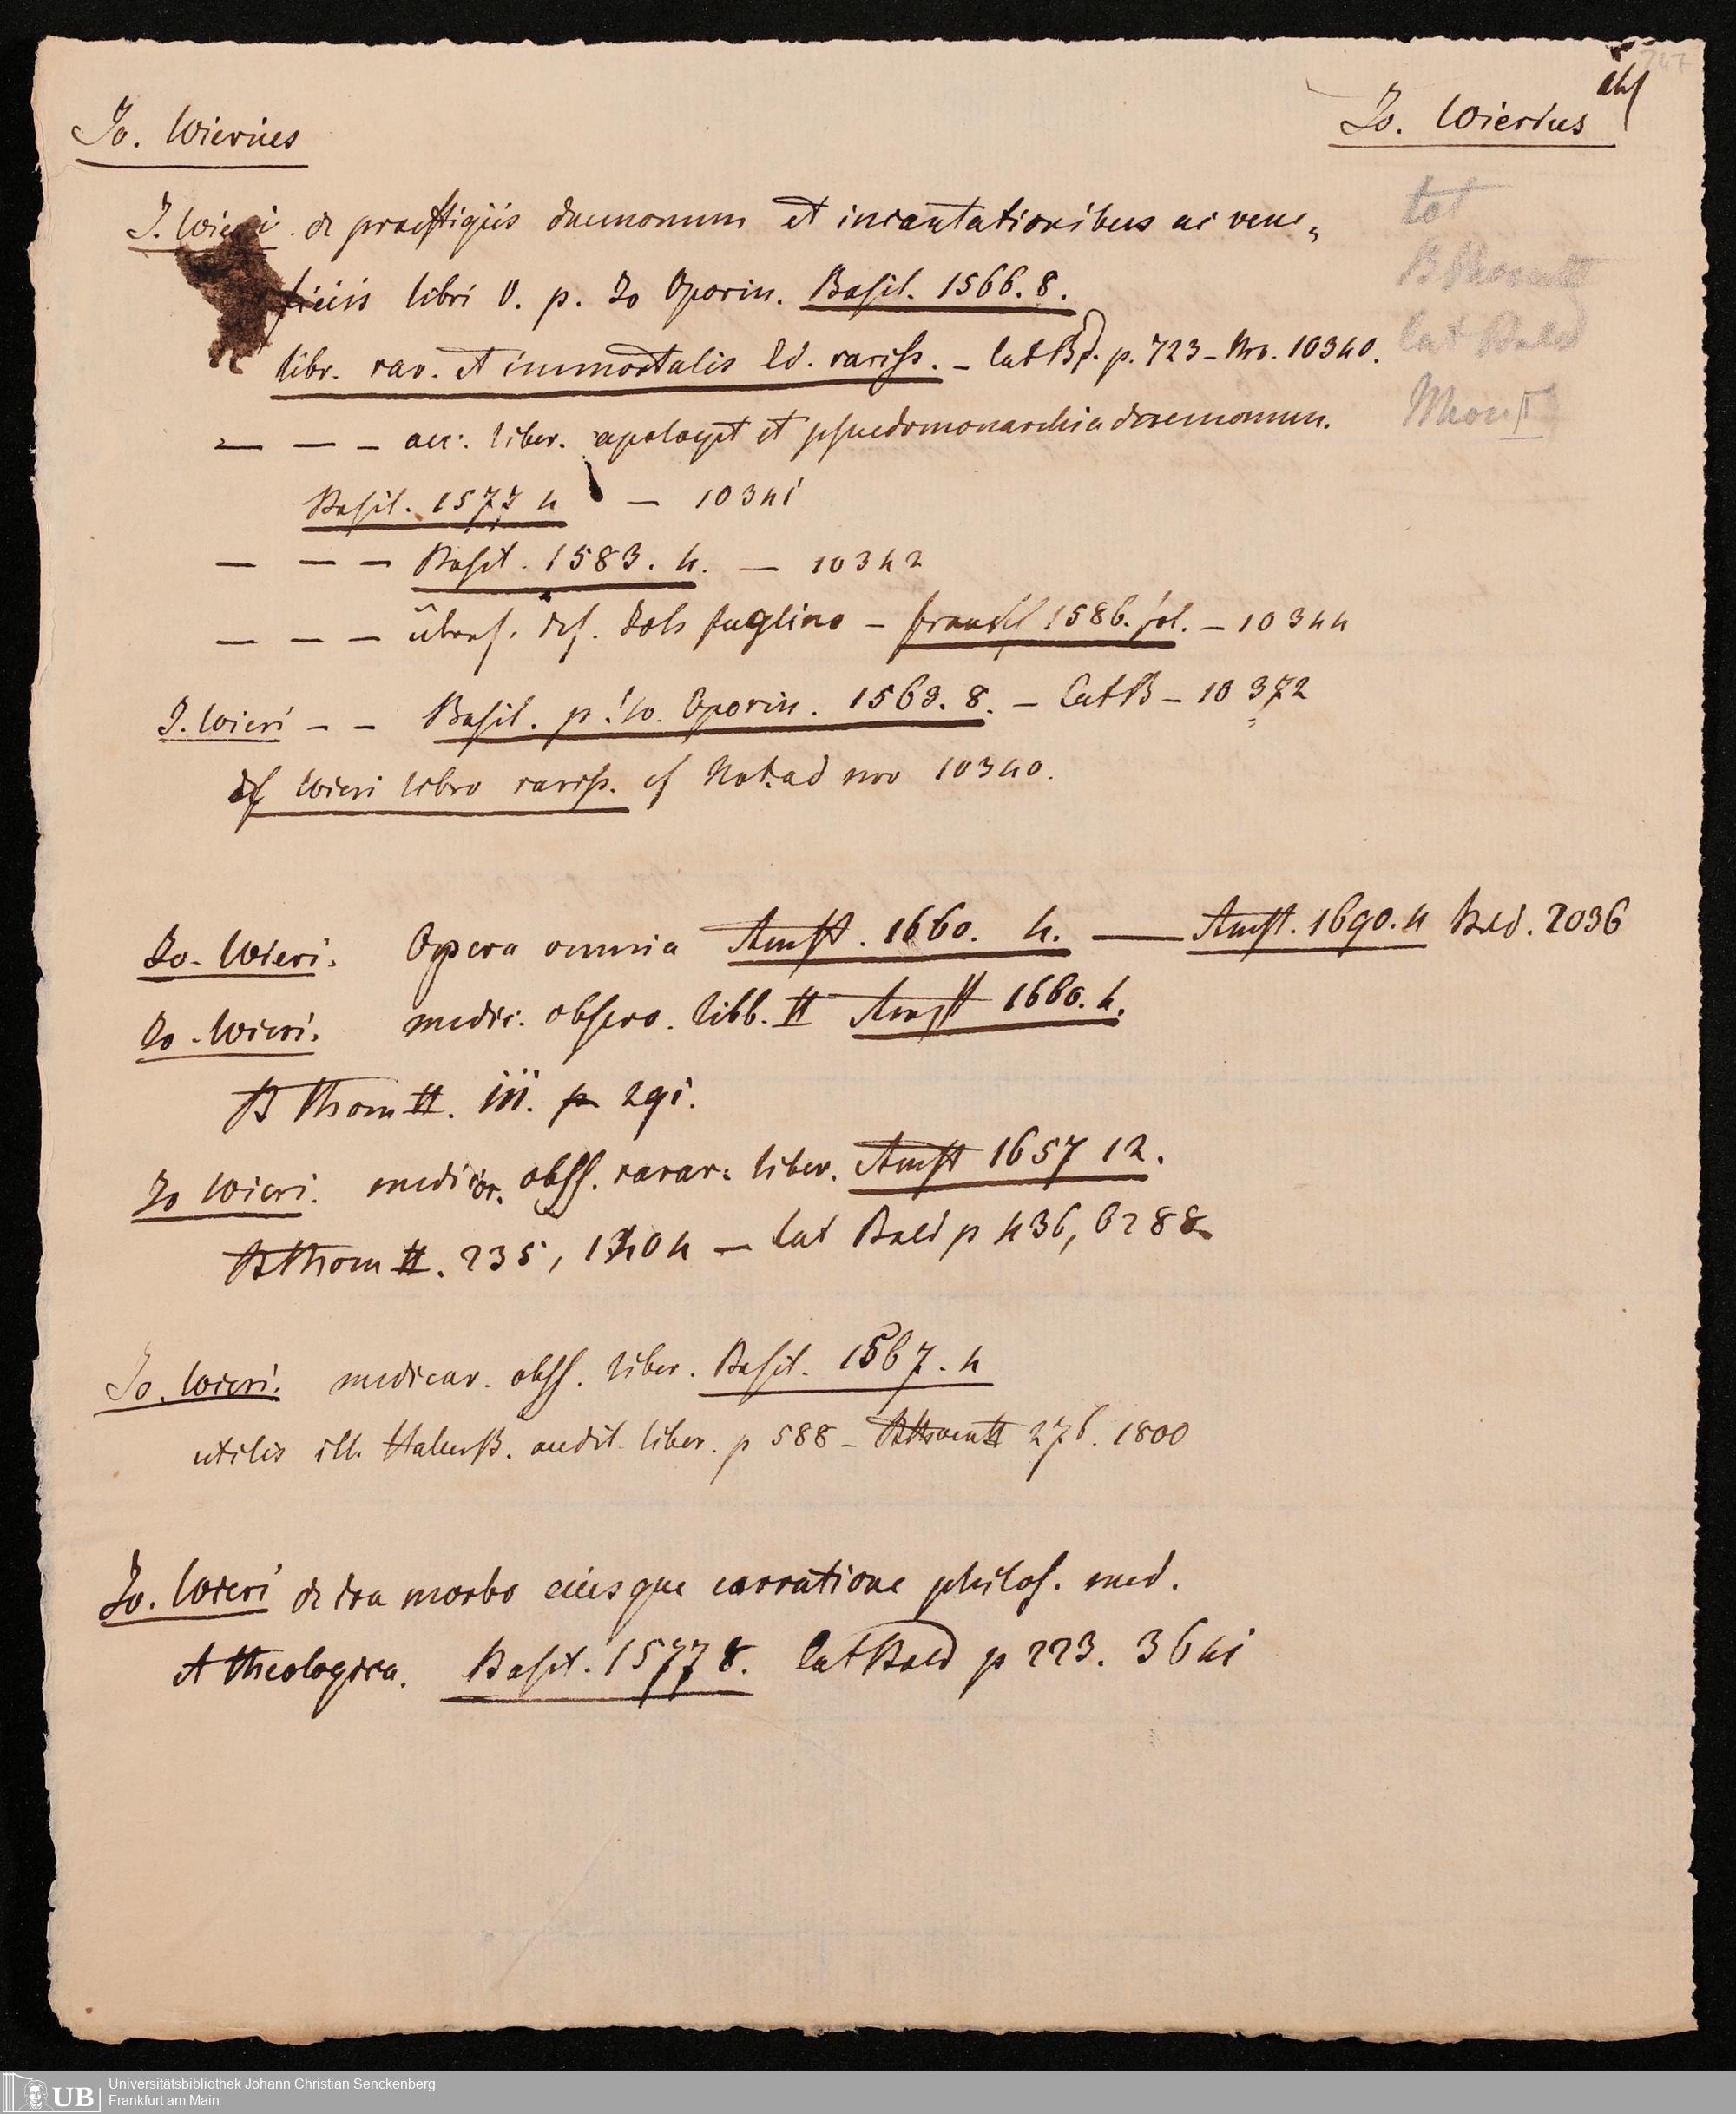 747
abs
Jo. Wierius
Jo. Wierius
J. Wieri de praestigiis daemonum et incantationibus ac vene„
ficiis libri V. p. Jo Oporin. Basil. 1566. 8.
libr. rar. et immortalis Ed. rariss. – Cat B p. 723 – Nro. 10340.
tot
B Thom II
Cat Bald
Thom II
— — – acc. liber. apologet et pseudomonarchia daemonum.
Basil. 1577 4 — 10341
— — — Basil. 1583. 4. — 10342
— — — übers. Joh fuglino – frankf 1586. fol. – 10344
J. Wieri – – Basil. p. Jo. Oporin. 1563. 8. – Cat B – 10372
Wieri libro rariss. cf Not. ad nro 10340.
Jo. Wieri. Opera omnia Amst. 1660. 4. —— Amst. 1690. 4 Bld. 2036
Jo. Wieri. medic. observ. libb. II Amst 1660. 4.
B Thom II. III. p 291.
Jo Wieri. medicar. obss. rarar. liber. Amst 1657 12.
B Thom II. 235, 1404 — Cat Bald p 436, 6288
Jo. Wieri. medicar. obss. liber. Basil. 1567. 4
utilis ill. audit liber. p 588 – B Thom II 276. 1800
Jo. Wieri de ira morbo eiusque curatione philos. med.
et theologica. Basil. 1577 8. Cat Bald p 223. 3641
UB Universitätsbibliothek Johann Christian Senckenberg
Frankfurt am Main